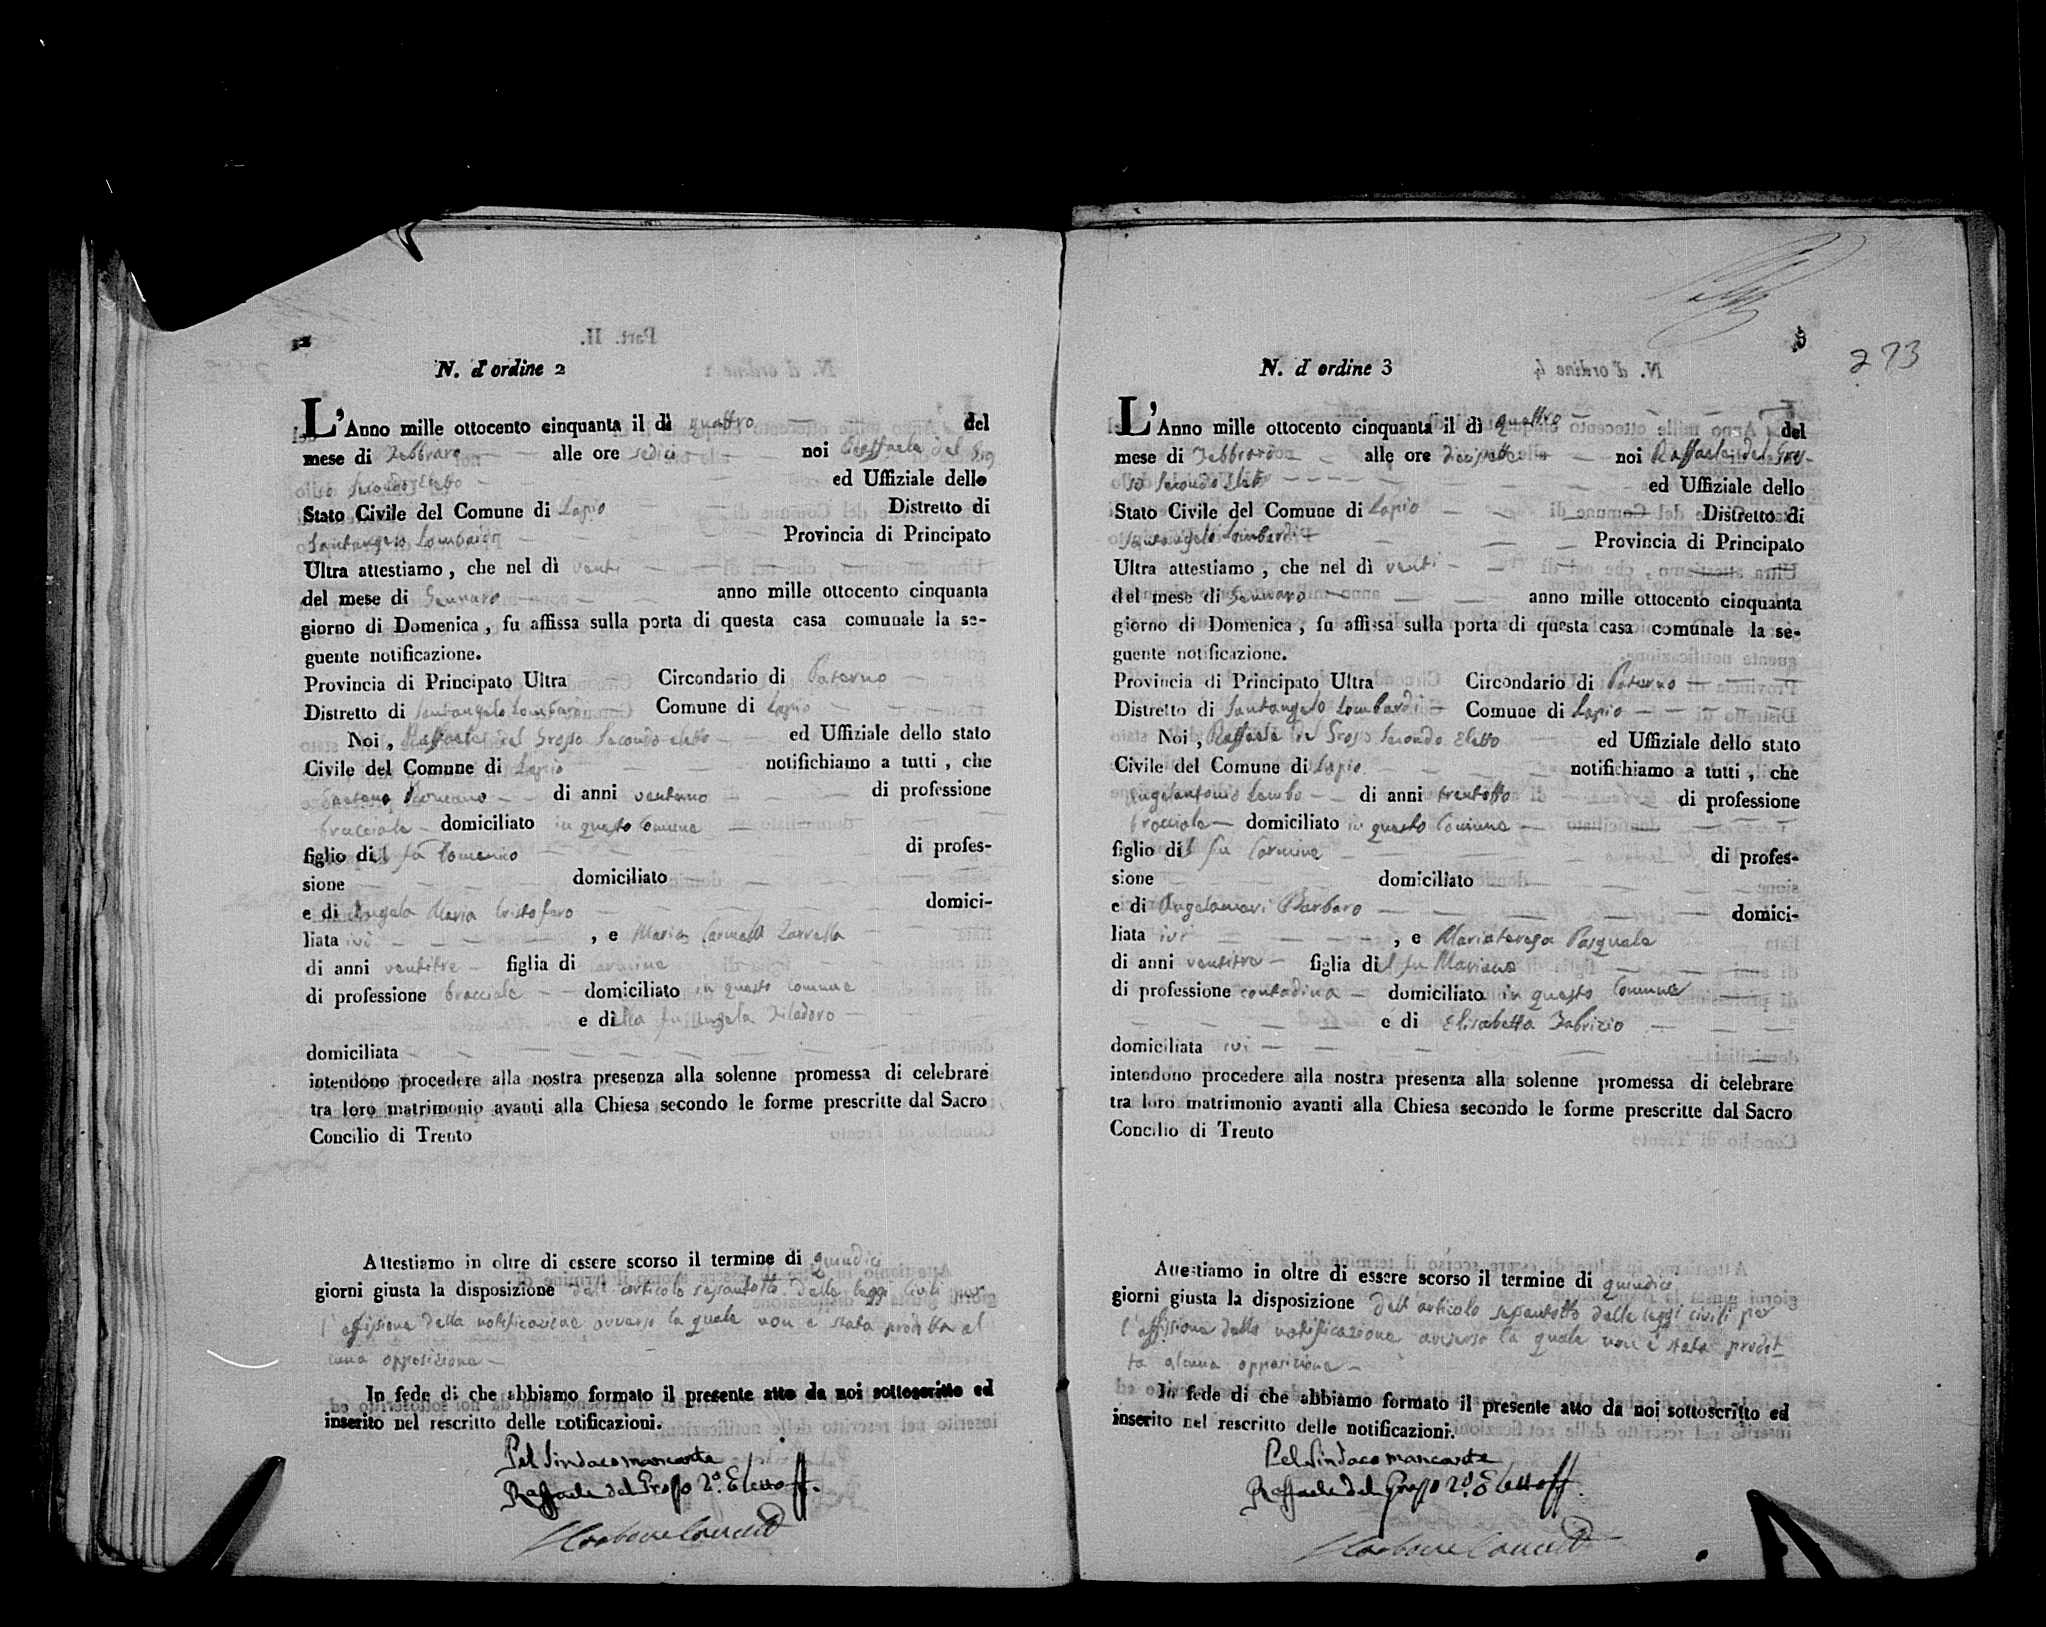 2
N. d'ordine 2
L'Anno mille ottocento cinquanta il dì quattro del
mese di Febbraro alle ore sedici noi Raffaele del Gros
so Secondo Eletto ed Uffiziale dello
Stato Civile del Comune di Lapio Distretto di
Santangelo Lombardi Provincia di Principato
Ultra attestiamo, che nel dì venti
del mese di Gennaro anno mille ottocento cinquanta
giorno di Domenica, fu affissa sulla porta di questa casa comunale la se-
guente notificazione.
Provincia di Principato Ultra Circondario di Paterno
Distretto di Santangelo Lombardi Comune di Lapio
Noi, Raffaele del Grosso Secondo eletto ed Uffiziale dello stato
Civile del Comune di Lapio notifichiamo a tutti, che
Gaetano Romano di anni ventuno di professione
bracciale domiciliato in questo Comune
figlio del fu di profes-
sione domiciliato
e di Angela Maria Cristofaro domici-
liata ivi, e Maria Carmela Zarrella
di anni ventitre figlia di Carmine
di professione bracciale domiciliato in questo Comune
e della fu Angela Filadoro
domiciliata
intendono procedere alla nostra presenza alla solenne promessa di celebrare
tra loro matrimonio avanti alla Chiesa secondo le forme prescritte dal Sacro
Concilio di Trento
Attestiamo in oltre di essere scorso il termine di quindici
giorni giusta la disposizione dell'articolo sessantotto delle leggi civili per
l'affissione della notificazione avverso la quale non è stata prodotta al
cuna opposizione
In fede di che abbiamo formato il presente atto da noi sottoscritto ed
inserito nel rescritto delle notificazioni.
Pel Sindaco mancante
Raffaele del Grosso 2º. Eletto
3
273
N. d'ordine 3
L'Anno mille ottocento cinquanta il dì quattro del
mese di Febbraro alle ore diecisette noi Raffaele del Gros-
so Secondo Eletto ed Uffiziale dello
Stato Civile del Comune di Lapio Distretto di
Santangelo Lombardi Provincia di Principato
Ultra attestiamo, che nel dì venti
del mese di Gennaro anno mille ottocento cinquanta
giorno di Domenica, fu affissa sulla porta di questa casa comunale la se-
guente notificazione.
Provincia di Principato Ultra Circondario di Paterno
Distretto di Santangelo Lombardi Comune di Lapio
Noi, Raffaele del Grosso Secondo Eletto ed Uffiziale dello stato
Civile del Comune di Lapio notifichiamo a tutti, che
Angelantonio Lembo di anni trentotto di professione
bracciale domiciliato in questo Comune
figlio del fu Carmine di profes-
sione domiciliato
e di Angelamari Barbaro domici-
liata ivi, e Mariateresa Pasquale
di anni ventitre figlia del fu Mariano
di professione contadina domiciliata in questo Comune
e di Elisabetta Fabrizio
domiciliata ivi
intendono procedere alla nostra presenza alla solenne promessa di celebrare
tra loro matrimonio avanti alla Chiesa secondo le forme prescritte dal Sacro
Concilio di Trento
Attestiamo in oltre di essere scorso il termine di quindici
giorni giusta la disposizione dell'articolo sessantotto delle leggi civili per
l'affissione della notificazione avverso la quale non è stata prodot
ta alcuna opposizione
In fede di che abbiamo formato il presente atto da noi sottoscritto ed
inserito nel rescritto delle notificazioni.
Pel Sindaco mancante
Raffaele del Grosso 2º. Eletto